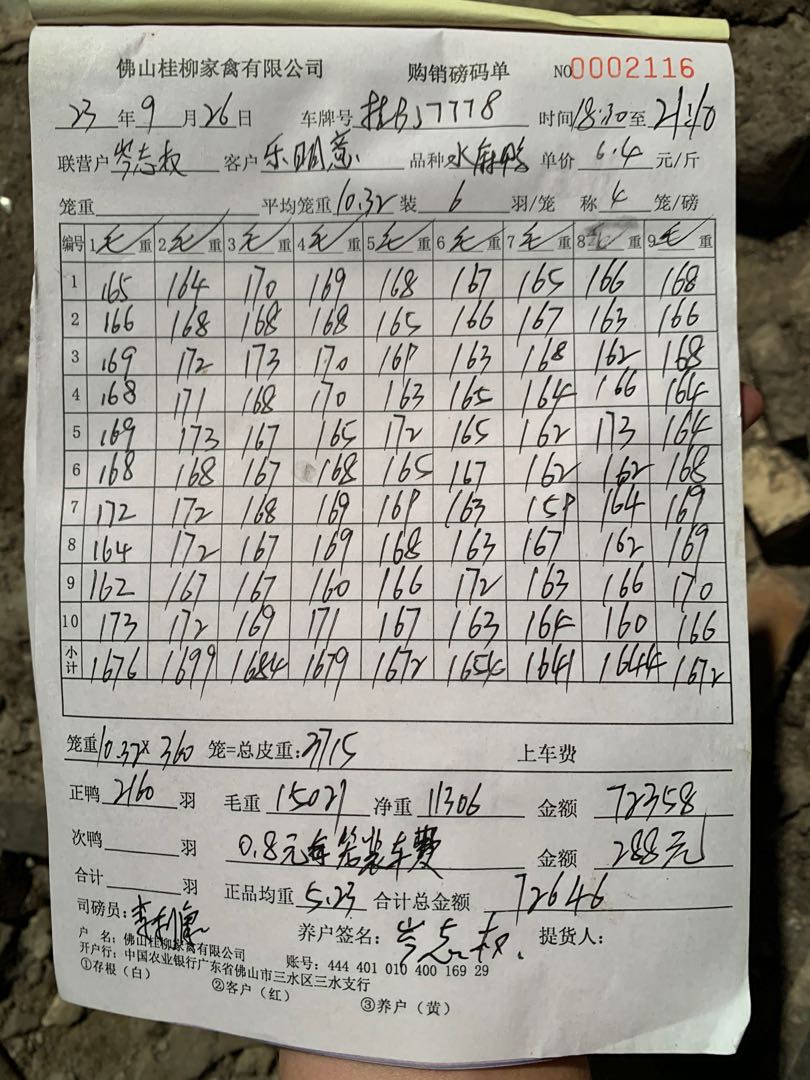 佛山桂柳家禽有限公司 购销磅码单 NO0002116
23年9月26日 车牌号 桂BJ7778 时间18:30至21:10
联营户 岑志权 客户 乐明意 品种 水麻鸭 单价 6.4 元/斤
笼重 平均笼重10.32装 6 羽/笼 称 4 笼/磅
编号 1毛重 2毛重 3毛重 4毛重 5毛重 6毛重 7毛重 8毛重 9毛重
1 165 164 170 169 168 167 165 166 168
2 166 168 168 168 165 166 167 163 166
3 169 172 173 170 169 163 168 162 168
4 168 171 168 170 163 165 164 166 164
5 169 173 167 165 172 165 162 173 164
6 168 168 167 168 165 167 162 162 168
7 172 172 168 169 169 163 159 164 169
8 164 172 167 169 168 163 167 162 169
9 162 167 167 160 166 172 163 166 170
10 173 172 169 171 167 163 164 160 166
小计 1676 1699 1684 1679 1672 1654 1641 1644 1672
笼重10.32×360 笼=总皮重:3715 上车费
正鸭 2160 羽 毛重 15021 净重 11306 金额 72358
次鸭 羽 0.8元每笼装车费 金额 288元
合计 羽 正品均重 5.23 合计总金额 72646
司磅员: 养户签名: 岑志权. 提货人:
户 名: 佛山桂柳家禽有限公司
开户行: 中国农业银行广东省佛山市三水区三水支行 账号: 444 401 010 400 169 29
①存根(白) ②客户(红) ③养户(黄)